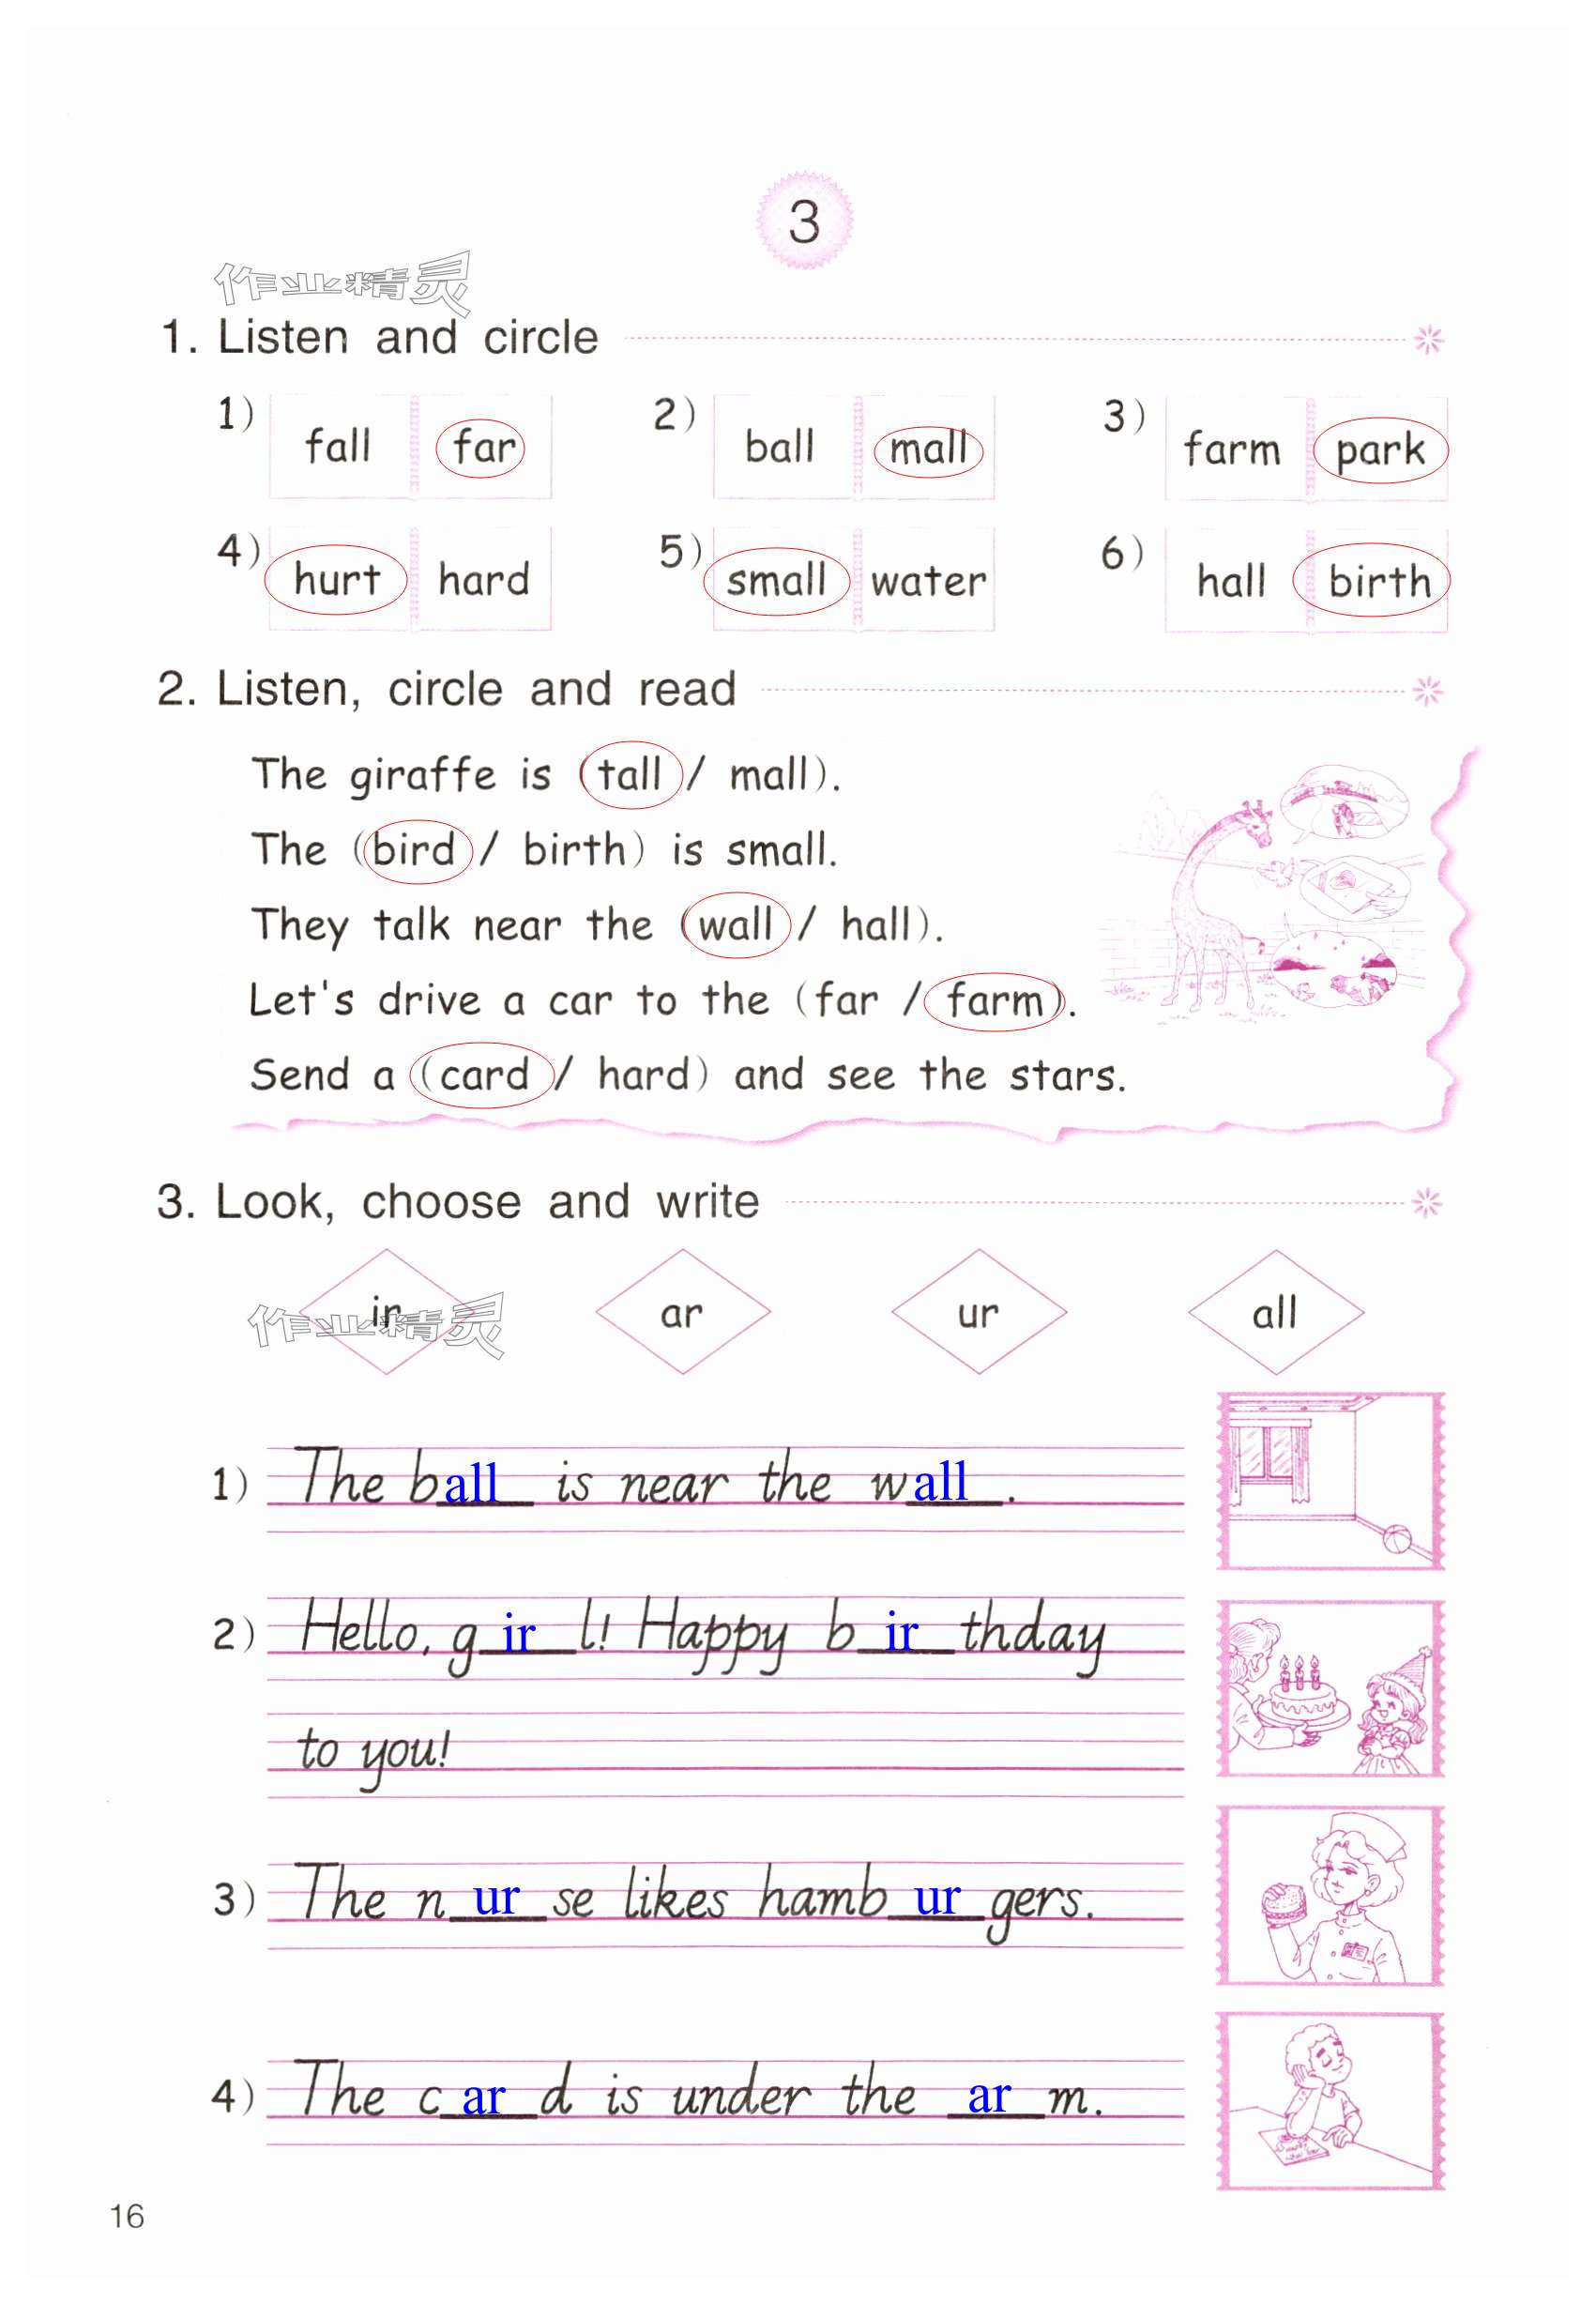 3
作业精灵
1. Listen and circle
1) fall far 2) ball mall 3) farm park
4) hurt hard 5) small water 6) hall birth
2. Listen, circle and read
The giraffe is (tall / mall).
The (bird / birth) is small.
They talk near the (wall / hall).
Let's drive a car to the (far / farm).
Send a (card / hard) and see the stars.
3. Look, choose and write
ir ar ur all
作业精灵
1) The ball is near the wall.
2) Hello, g ir l! Happy b ir thday
to you!
3) The n ur se likes hamb ur gers.
4) The c ar d is under the ar m.
16